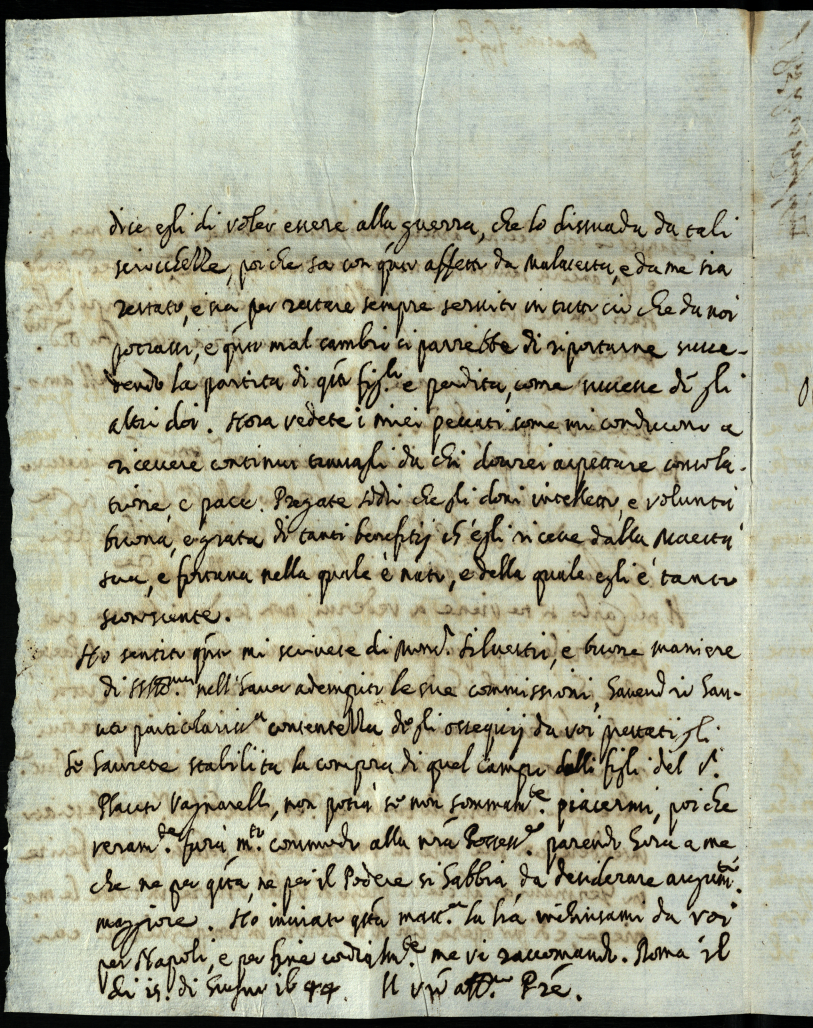 dice egli di voler essere alla guerra, che lo dissuada da tali
sciocchezze, poiche sa con qñto affetto da Malatesta, e da me sia
restato, e sia per restare sempre servito in tutto ciò che da noi
potrassi, e qñto mal cambio ci parrebbe di riportarne succe-
dendo la partita di qto figl.lo e perdita, come successe de gli
altri doi. Hora vedete i miei peccati come mi conducono a
ricevere continui travagli da chi dovrei aspettare consola-
tione, e pace. Pregate Iddio che gli doni intelletto, e voluntà
buona, e grata di tanti benefitij ch'egli riceve dalla Maestà
sua, e fortuna nella quale è nato, e della quale egli è tanto
sconoscente.
Ho sentito qñto mi scrivete di Mons.r Silvestri, e buone maniere
di nell'haver adempito le sue commissioni, havend io hau-
uto particolariss.a contentezza de gli ossequij da voi prestati gli.
Se haurete stabilita la compra di quel campo delli figli del S.r
Placito Vagnarelli, non potrà se non sommam.te piacermi, poi che
veram.te sarà m.to commodo alla nrã Possess.e parendo hora a me
che ne per qsta, ne per il Podere si habbia da desiderare augum.to
maggiore. Ho inviato qsta matt.a la l̃ra inchiusami da voi
per Napoli, e per fine cordialm.te me vi raccomando. Roma il
di 15. di Giugno 1644. Il vrõ aff.mo Prẽ.